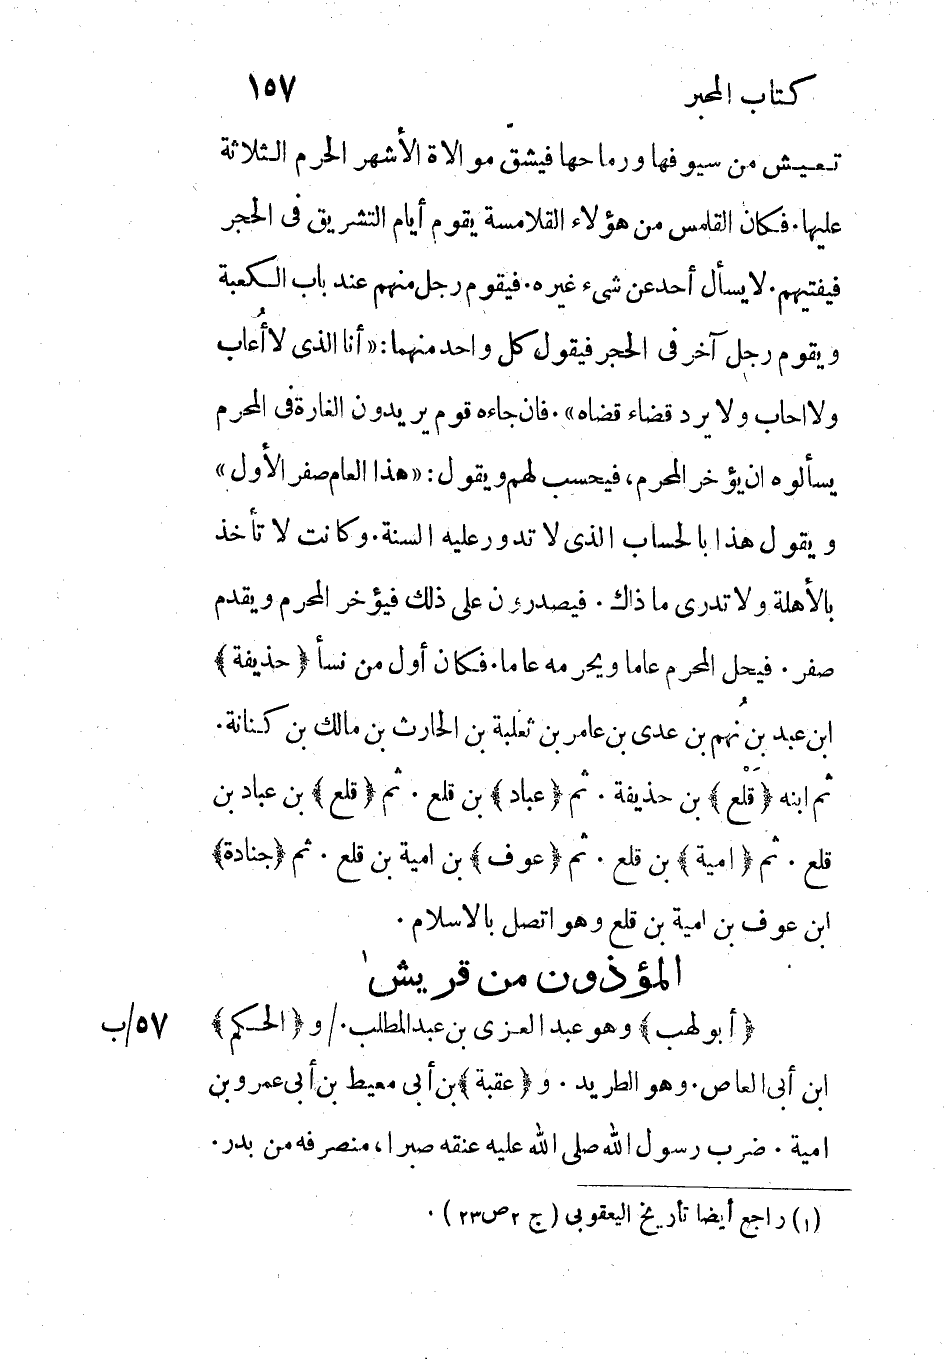 كتاب المحبر ١٥٧
تعيش من سيوفها ورماحها فيشقّ موالاة الأشهر الحرم الثلاثة
عليها. فكان القلمس من هؤلاء القلامسة يقوم أيام التشريق فى الحجر
فيفتيهم. لا يسأل أحد عن شىء غيره. فيقوم رجل منهم عند باب الكعبة
ويقوم رجل آخر فى الحجر فيقول كل واحد منهما: «أنا الذى لا أُعاب
ولا احاب ولا يرد قضاء قضاه». فان جاءه قوم يريدون الغارة فى المحرم
يسألوه ان يؤخر المحرم، فيحسب لهم ويقول: «هذا العام صفر الأول»
ويقول هذا بالحساب الذى لا تدور عليه السنة. وكانت لا تأخذ
بالأهلة ولا تدرى ما ذاك. فيصدرون على ذلك فيؤخر المحرم ويقدم
صفر. فيحل المحرم عاما ويحرمه عاما. فكان أول من نسأ ﴿حذيفة﴾
ابن عبد بن نُهم بن عدى بن عامر بن ثعلبة بن الحارث بن مالك بن كنانة.
ثم ابنه ﴿قَلْع﴾ بن حذيفة. ثم ﴿عباد﴾ بن قلع. ثم ﴿قلع﴾ بن عباد بن
قلع. ثم ﴿امية﴾ بن قلع. ثم ﴿عوف﴾ بن امية بن قلع. ثم ﴿جنادة﴾
ابن عوف بن امية بن قلع وهو اتصل بالاسلام.
المؤذون من قريش ١
﴿أبو لهب﴾ وهو عبد العزى بن عبد المطلب. / و ﴿الحكم﴾ ٥٧/ب
ابن أبى العاص. وهو الطريد. و ﴿عقبة﴾ بن أبى معيط بن أبى عمرو بن
امية. ضرب رسول الله صلى الله عليه عنقه صبرا، منصرفه من بدر.
(١) راجع أيضا تأريخ اليعقوبى (ج ٢ ص ٢٣).